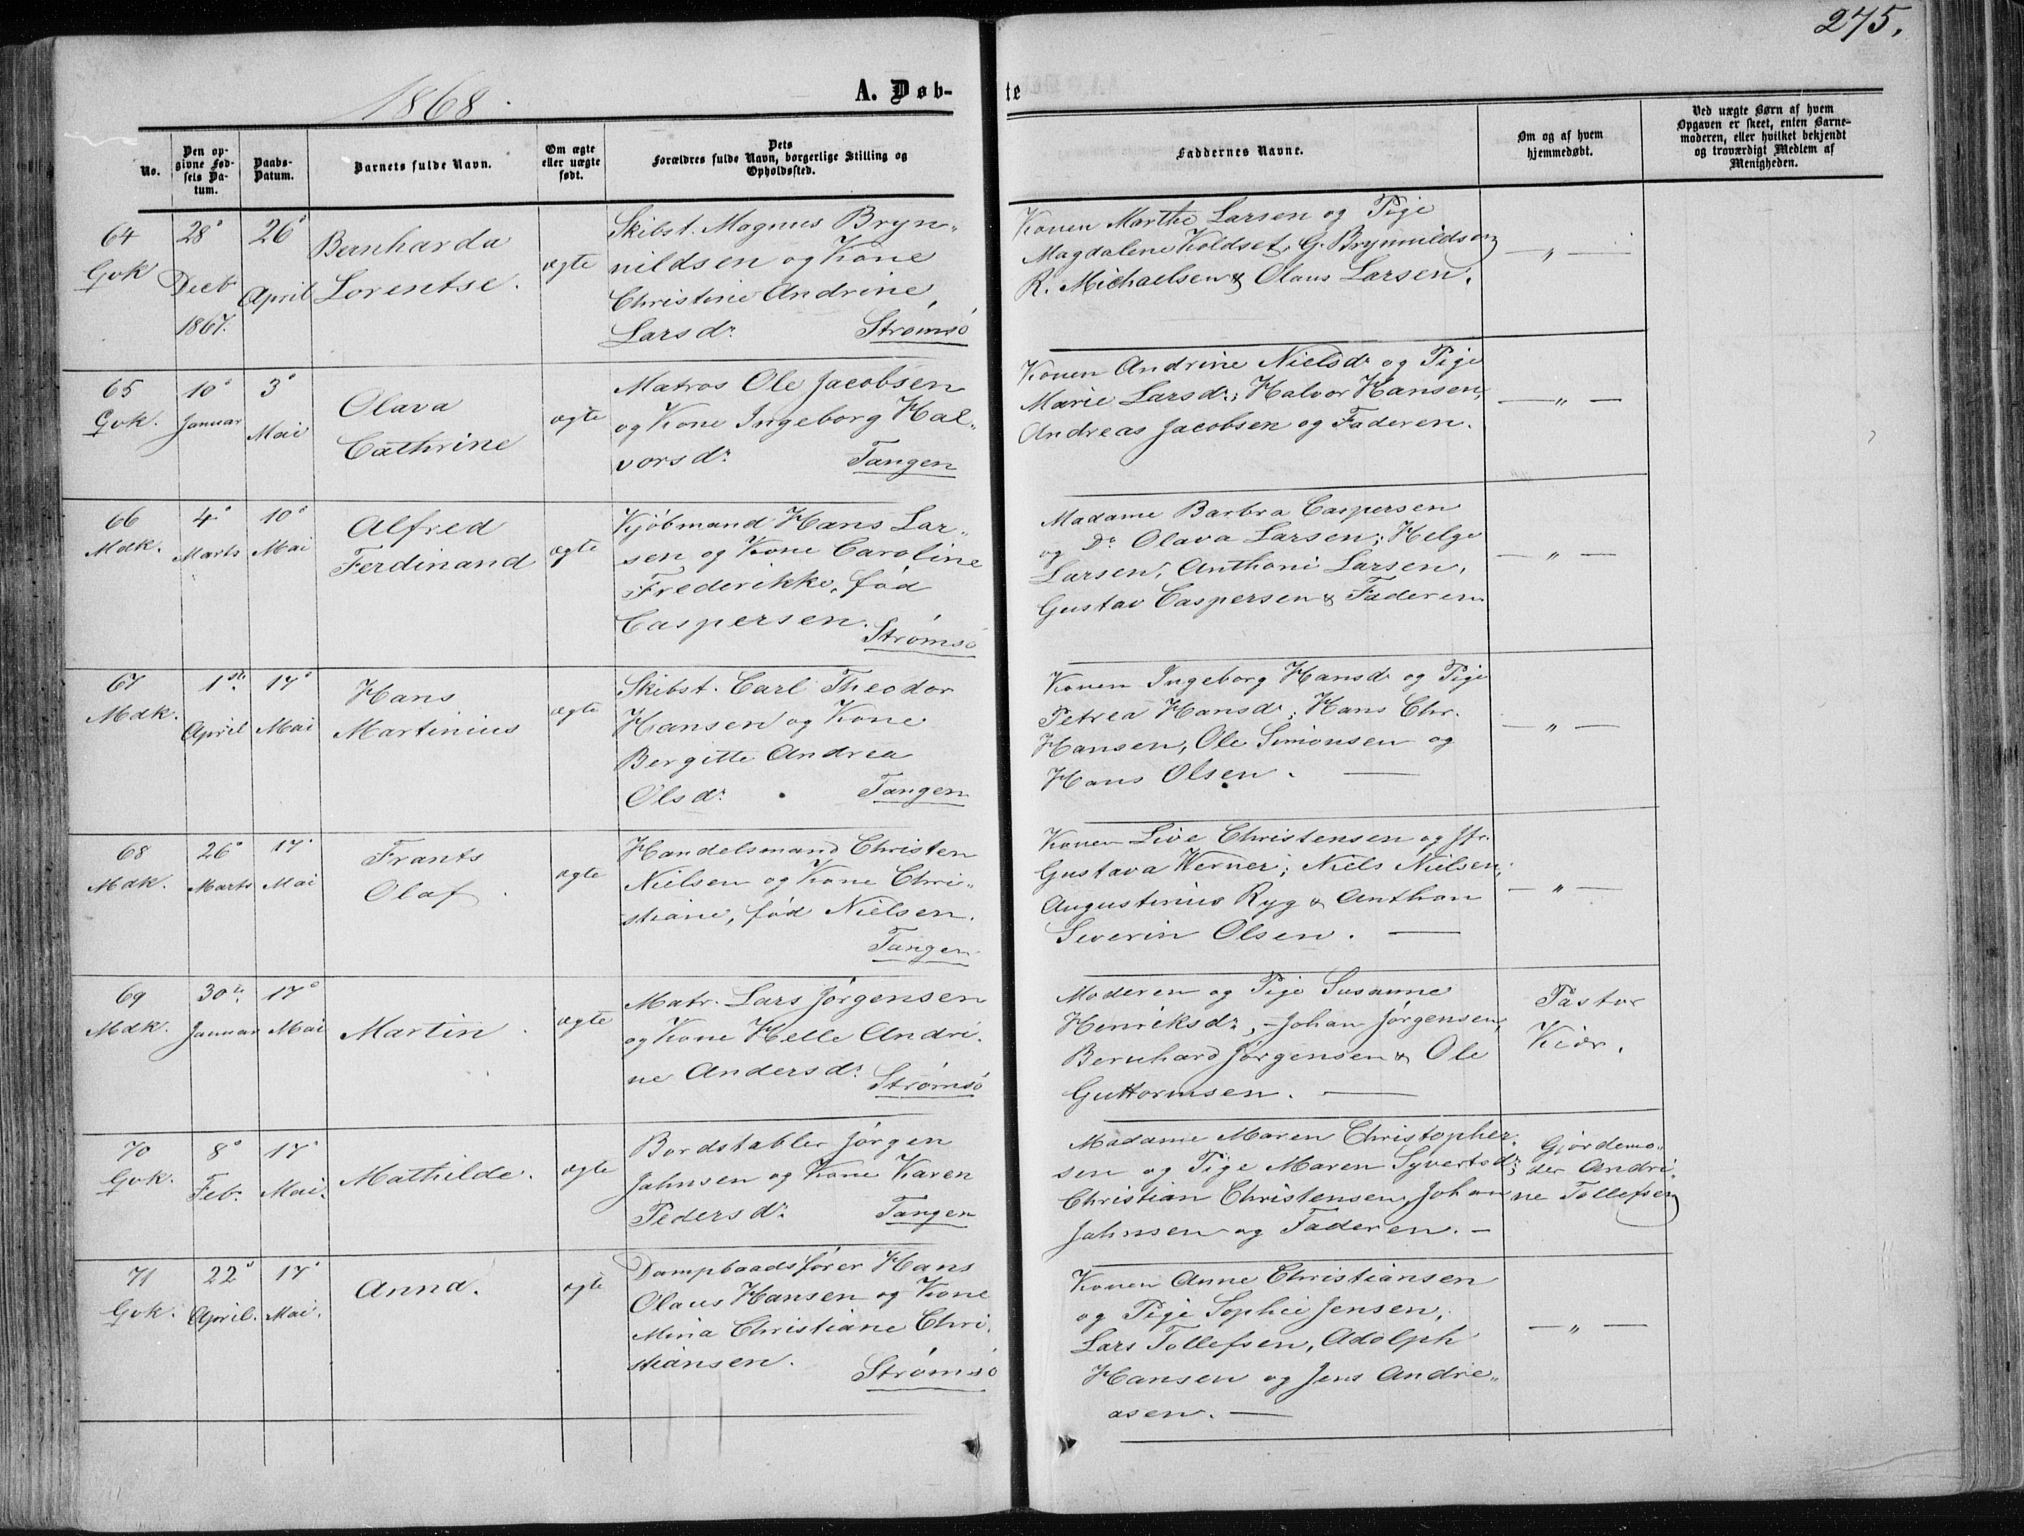 275.
1868.
A. Døb-
te
No.
Den op-
givne Fød-
sels Da-
tum.
Daabs-
Datum.
Barnets fulde Navn.
Om ægte
eller uægte
født.
Dets
Forældres fulde Navn, borgerlige Stilling og
Opholdssted.
Faddernes Navne.
Om og af hvem
hjemmedøbt.
Ved uægte Børn af hvem
Opgaven er skeet, enten Barne-
moderen, eller hvilket bekjendt
og troværdigt Medlem af
Menigheden.
64
Gvk
28de
Decbr
1867.
26de
April
Banharda
Lorentse.
ægte
Skibst. Magnus Bryn-
nildsen og Kone
Christine Andrine
Larsdr. Strømsø
Konen Marthe Larsen og Pige
Magdalene Koldset, G. Brynnildsen
R. Michaelsen & Olaus Larsen.
— „ —
65
Gvk.
10de
Januar
3de
Mai
Olava
Cathrine
ægte
Matros Ole Jacobsen
og Kone Ingeborg Hal-
vorsdr. Tangen
Konen Andrine Nielsdr og Pige
Marie Larsdr; Halvor Hansen,
Andreas Jacobsen og Faderen.
— „ —
66
Mdk.
4de
Marts
10de
Mai
Alfred
Ferdinand
ægte
Kjøbmand Hans Lar-
sen og Kone Caroline
Frederikke, fød
Caspersen. Strømsø
Madame Barbra Caspersen
og Do Olava Larsen; Helge
Larsen, Anthoni Larsen,
Gustav Caspersen & Faderen
— „ —
67
Mdk.
1ste
April
17de
Mai
Hans
Martinius
ægte
Skibst. Carl Theodor
Hansen og Kone
Bergitte Andrea
Olsdr. Tangen
Konen Ingeborg Hansdr og Pige
Petrea Hansdr; Hans Chr.
Hansen, Ole Simonsen og
Hans Olsen. —
— „ —
68
Mdk.
26de
Marts
17de
Mai
Frants
Olaf.
ægte
Handelsmand Christen
Nielsen og Kone Chri-
stiane, fød Nielsen.
Tangen
Konen Live Christensen og Jfr.
Gustava Werner; Niels Nielsen,
Augustinius Ryg & Anthon
Severin Olsen. —
— „ —
69
Mdk.
30te
Januar
17de
Mai
Martin.
ægte
Matr. Lars Jørgensen
og Kone Helle Andri-
ne Andersdr. Strømsø
Moderen og Pige Susanne
Henriksdr, - Johan Jørgensen,
Bernhard Jørgensen & Ole
Guttormsen. —
Pastor
Kiør.
70
Gvk.
8de
Febr.
17de
Mai.
Mathilde.
ægte
Bordstabler Jørgen
Jahnsen og Kone Karen
Pedersdr. Tangen
Madame Maren Christopher-
sen og Pige Maren Syvertsdr;
Christian Christensen, Johan
Jahnsen og Faderen. —
Gjordemo-
der Andri-
ne Tollefsen
71
Gvk.
22de
April.
17de
Mai.
Anna.
ægte
Dampbaadsfører Hans
Olaus Hansen og Kone
Mina Christiane Chri-
stiansen. Strømsø
Konen Anne Christiansen
og Pige Sophie Jensen,
Lars Tollefsen, Adolph
Hansen og Jens Andre-
asen. —
— „ —